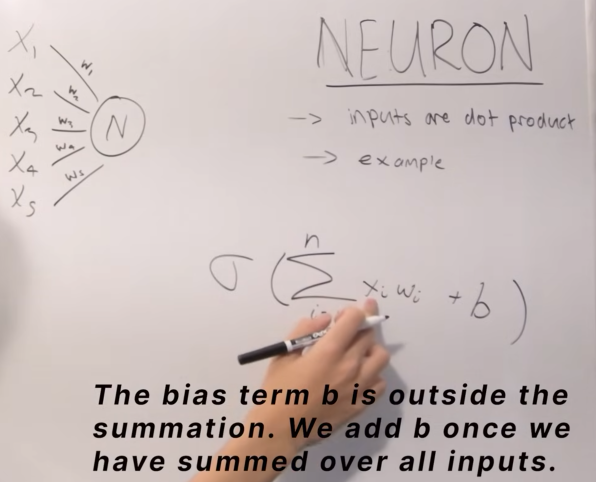 NEURON
X1 w1
X2 w2
X3 w3 N
X4 w4
X5 w5
-> inputs are dot product
-> example
n
σ ( Σ xi wi + b )
The bias term b is outside the
summation. We add b once we
have summed over all inputs.